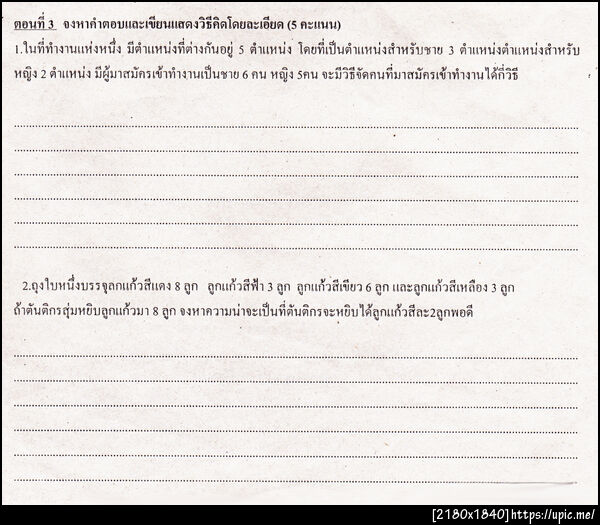 ตอนที่ 3 จงหาคำตอบและเขียนแสดงวิธีคิดโดยละเอียด (5 คะแนน)
1.ในที่ทำงานแห่งหนึ่ง มีตำแหน่งที่ต่างกันอยู่ 5 ตำแหน่ง โดยที่เป็นตำแหน่งสำหรับชาย 3 ตำแหน่งตำแหน่งสำหรับ
หญิง 2 ตำแหน่ง มีผู้มาสมัครเข้าทำงานเป็นชาย 6 คน หญิง 5คน จะมีวิธีจัดคนที่มาสมัครเข้าทำงานได้กี่วิธี
2.ถุงใบหนึ่งบรรจุลูกแก้วสีแดง 8 ลูก ลูกแก้วสีฟ้า 3 ลูก ลูกแก้วสีเขียว 6 ลูก และลูกแก้วสีเหลือง 3 ลูก
ถ้าตันติกรสุ่มหยิบลูกแก้วมา 8 ลูก จงหาความน่าจะเป็นที่ตันติกรจะหยิบได้ลูกแก้วสีละ2ลูกพอดี
[2180x1840]https://upic.me/